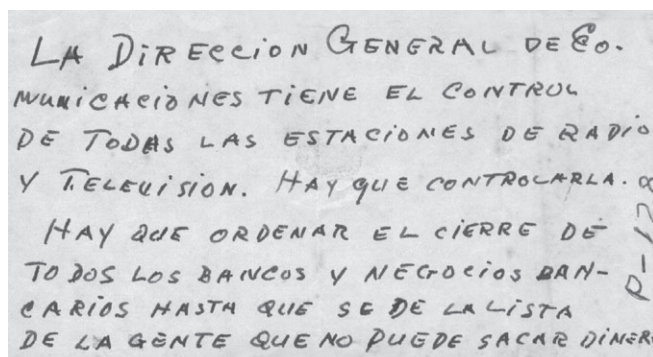 LA DIRECCION GENERAL DE CO-
MUNICACIONES TIENE EL CONTROL
DE TODAS LAS ESTACIONES DE RADIO
Y TELEVISION. HAY QUE CONTROLARLA.
HAY QUE ORDENAR EL CIERRE DE
TODOS LOS BANCOS Y NEGOCIOS BAN-
CARIOS HASTA QUE SE DE LA LISTA
DE LA GENTE QUE NO PUEDE SACAR DINER